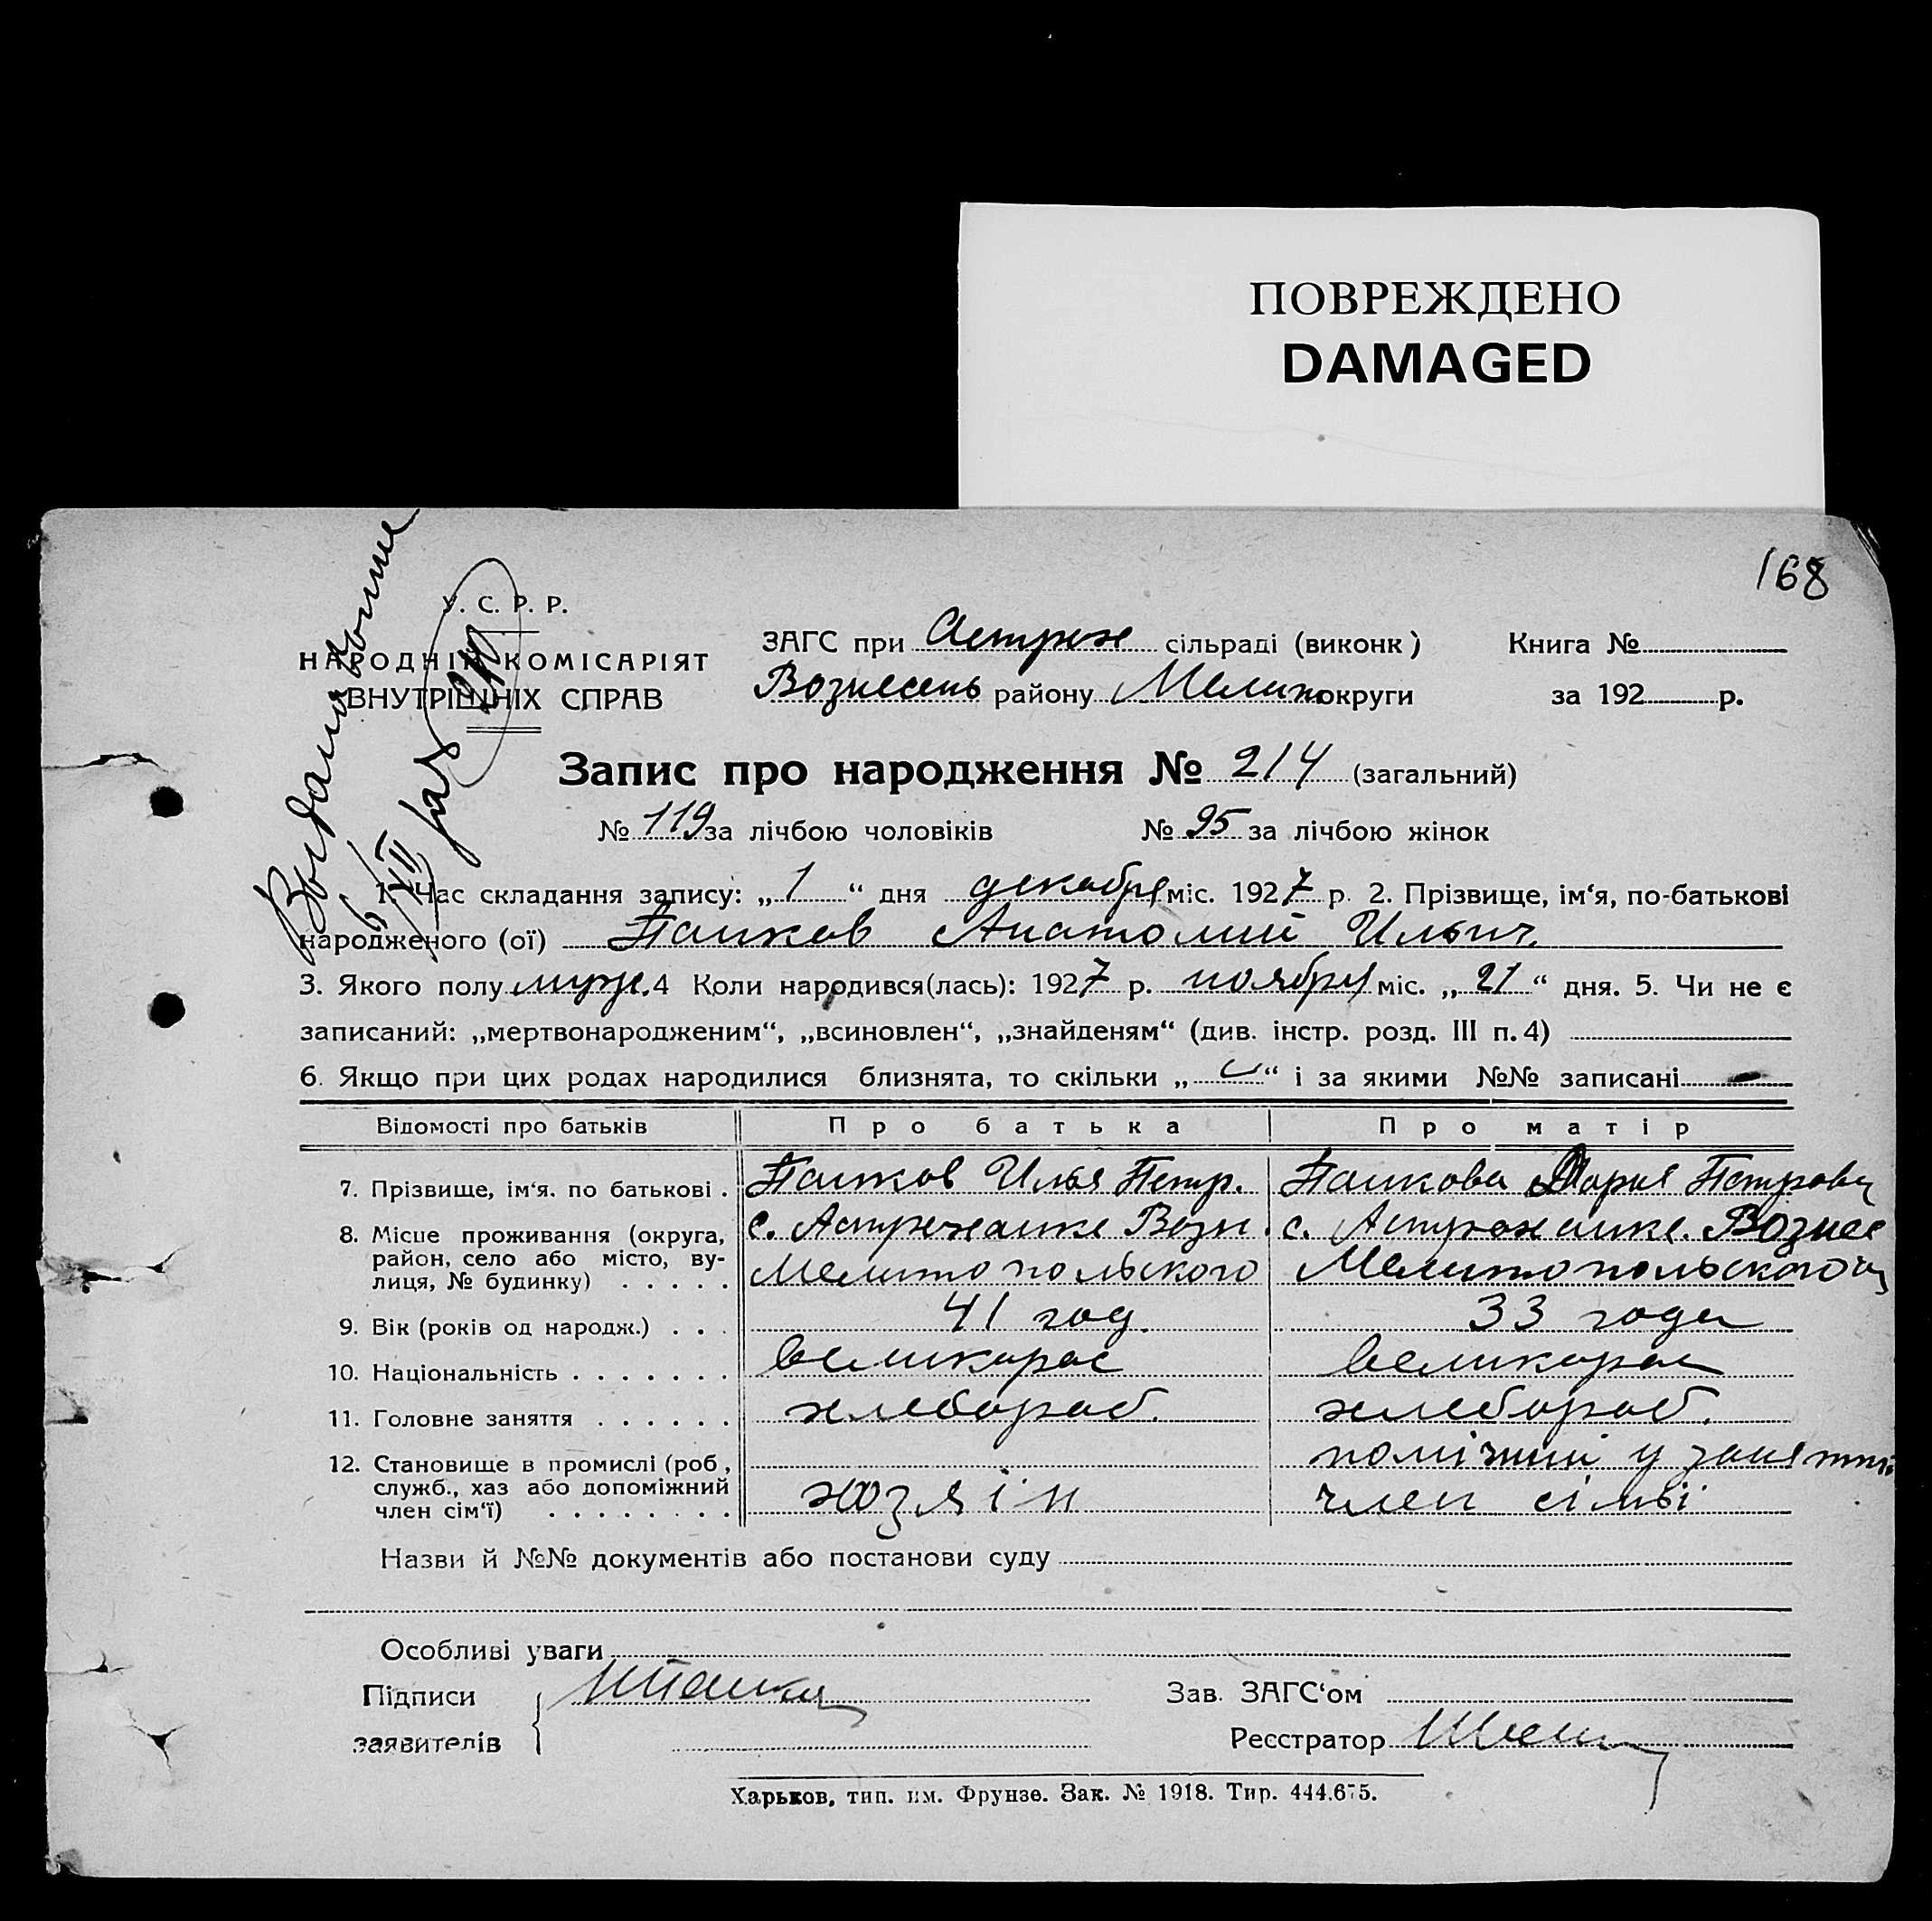 ПОВРЕЖДЕНО
DAMAGED
168
Выдана выпис
6/XII
У. С. Р. Р.
НАРОДНІЙ КОМІСАРІЯТ
ВНУТРІШНІХ СПРАВ
ЗАГС при Астрах сільраді (виконк)
Вознесень району Мелито округи
Книга №
за 192 р.
Запис про народження № 214 (загальний)
№ 119 за лічбою чоловіків № 95 за лічбою жінок
1. Час складання запису: „1“ дня декабря міс. 1927 р. 2. Прізвище, ім'я, по-батькові
народженого (ої) Панков Анатолий Ильич
3. Якого полу муж. 4 Коли народився(лась): 1927 р. ноября міс. „21“ дня. 5. Чи не є
записаний: „мертвонародженим“, „всиновлен“, „знайденям“ (див. інстр. розд. III п. 4)
6. Якщо при цих родах народилися близнята, то скільки „—“ і за якими №№ записані —
Відомості про батьків Про батька Про матір
7. Прізвище, ім'я. по батькові . Панков Илья Петр. Панкова Мария Петровн
8. Місце проживання (округа, район, село або місто, вулиця, № будинку) . . . . . с. Астраханке Возн. с. Астраханке. Вознес
Мелитопольского Мелитопольского
9. Вік (років од народж.) . . . 41 год. 33 года
10. Національність . . . . . . . великорос великорос
11. Головне заняття . . . . . . хлебороб. хлебороб.
12. Становище в промислі (роб, служб., хаз або допоміжний член сім'ї) . . . . . . . . хозяін помічний у занятті
член сімьі
Назви й №№ документів або постанови суду
Особливі уваги
Підписи
заявителів
Зав. ЗАГС'ом
Реєстратор
Харьков, тип. им. Фрунзе. Зак. № 1918. Тир. 444.675.